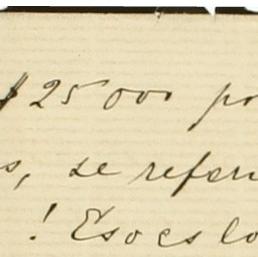 $25000 po
s, se refer
! Eso es lo